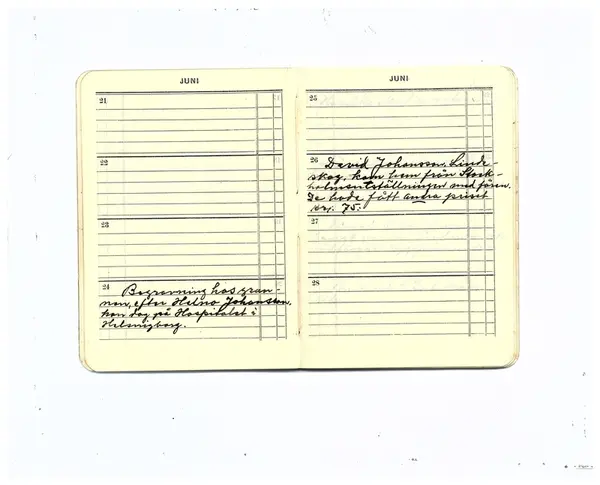 JUNI
21
22
23
24 Begravning hos gran-
nen, efter Helno Johansson,
han dog på Hospitalet i
Helsingborg.
JUNI
25
26 David Johansson, Linde-
skog, kom hem från Stock-
holmsutställningen med fåren.
De hade fått andra priset
kr. 75.
27
28